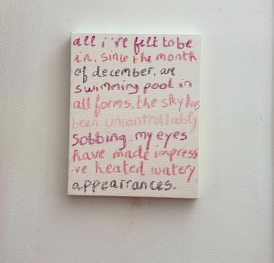 all i've felt to be
in, since the month
of december, are
swimming pool in
all forms. the sky has
been uncontrollably
sobbing. my eyes
have made impress
-ve heated watery
appearrances.